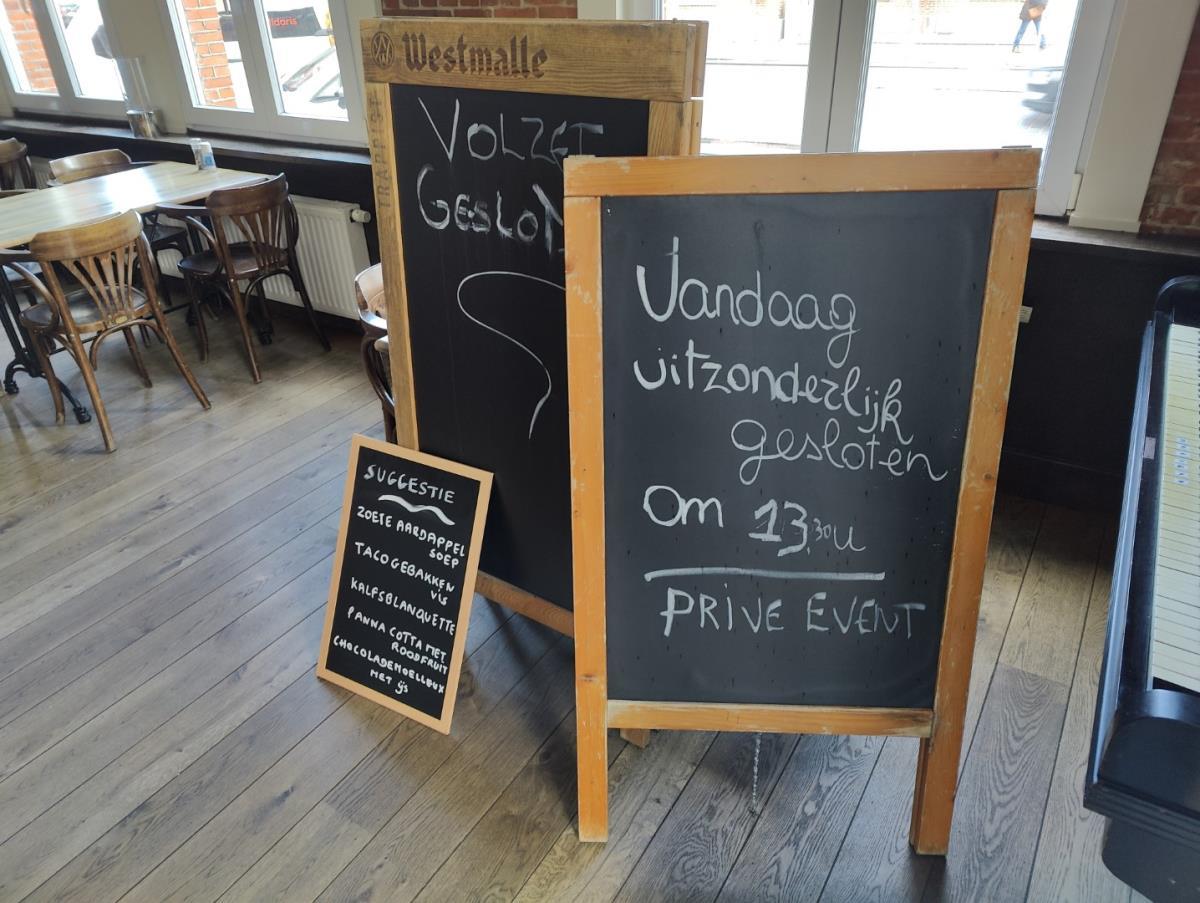 Westmalle
TRAPPIST
VOLZET
GESLOTEN
Vandaag
uitzonderlijk
gesloten
Om 13,30u
PRIVE EVENT
SUGGESTIE
ZOETE AARDAPPEL
SOEP
TACO GEBAKKEN
VIS
KALFSBLANQUETTE
PANNA COTTA MET
ROODFRUIT
CHOCOLADEMOELLEUX
MET ijs